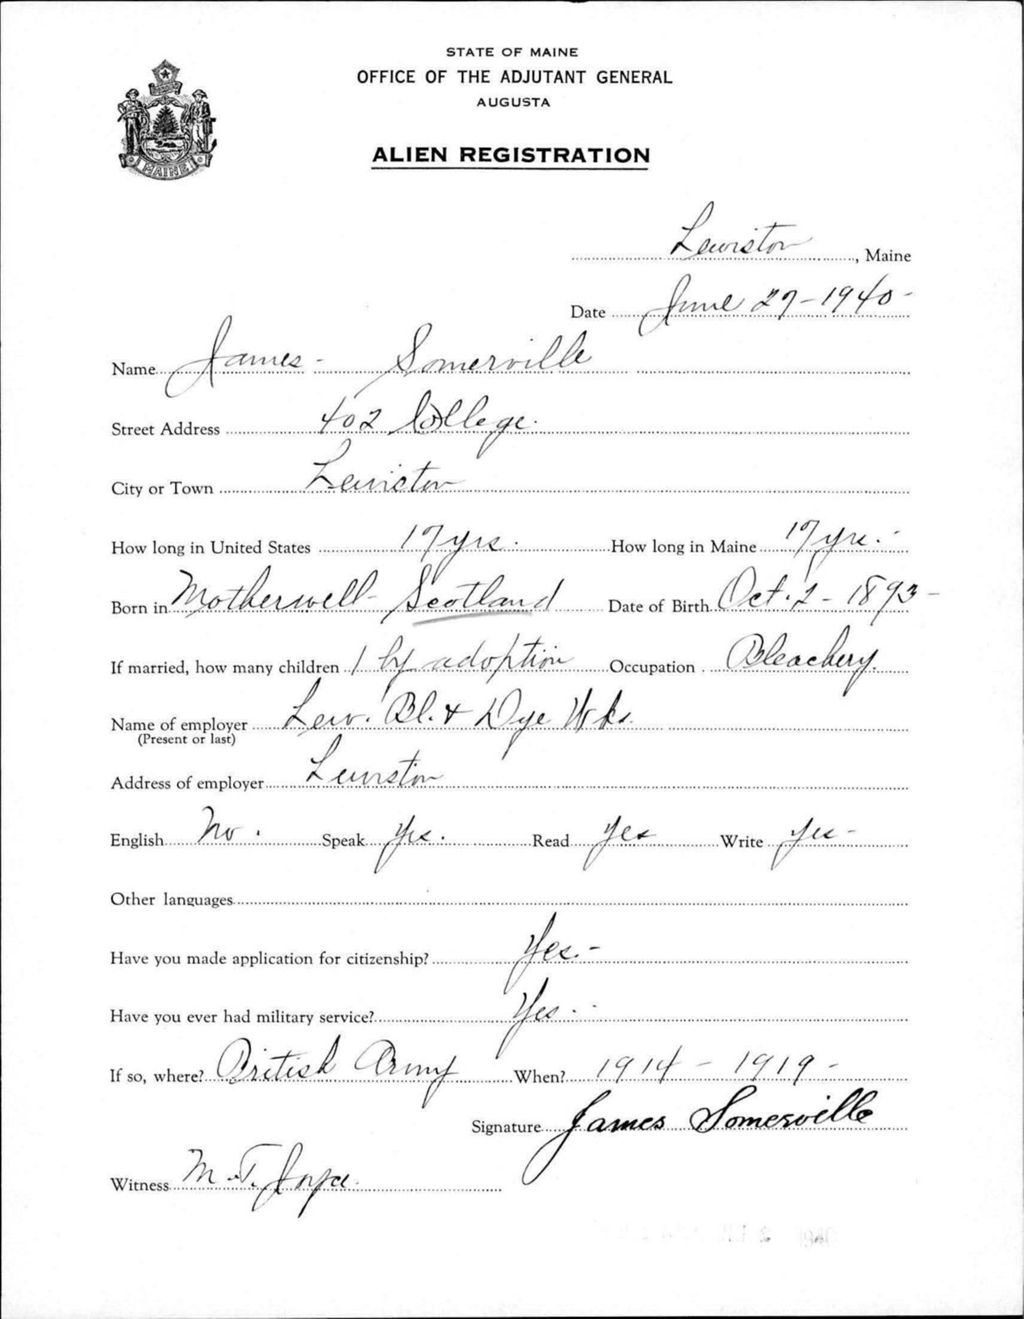 STATE OF MAINE
OFFICE OF THE ADJUTANT GENERAL
AUGUSTA
ALIEN REGISTRATION
MAINE
Lewiston, Maine
Date June 27-1940-
Name James - Somerville
Street Address 402 College.
City or Town Lewiston
How long in United States 17 yrs. How long in Maine 17 yrs.-
Born in Motherwell- Scotland Date of Birth Oct. 2 - 1893-
If married, how many children 1 by adoption Occupation Bleachery.
Name of employer Lew. Bl. & Dye Wks.
(Present or last)
Address of employer Lewiston
English No. Speak Yes. Read Yes Write Yes-
Other languages
Have you made application for citizenship? Yes.-
Have you ever had military service? Yes -
If so, where? British Army When? 1914 - 1919 -
Signature James Somerville
Witness M. T. Joyce.